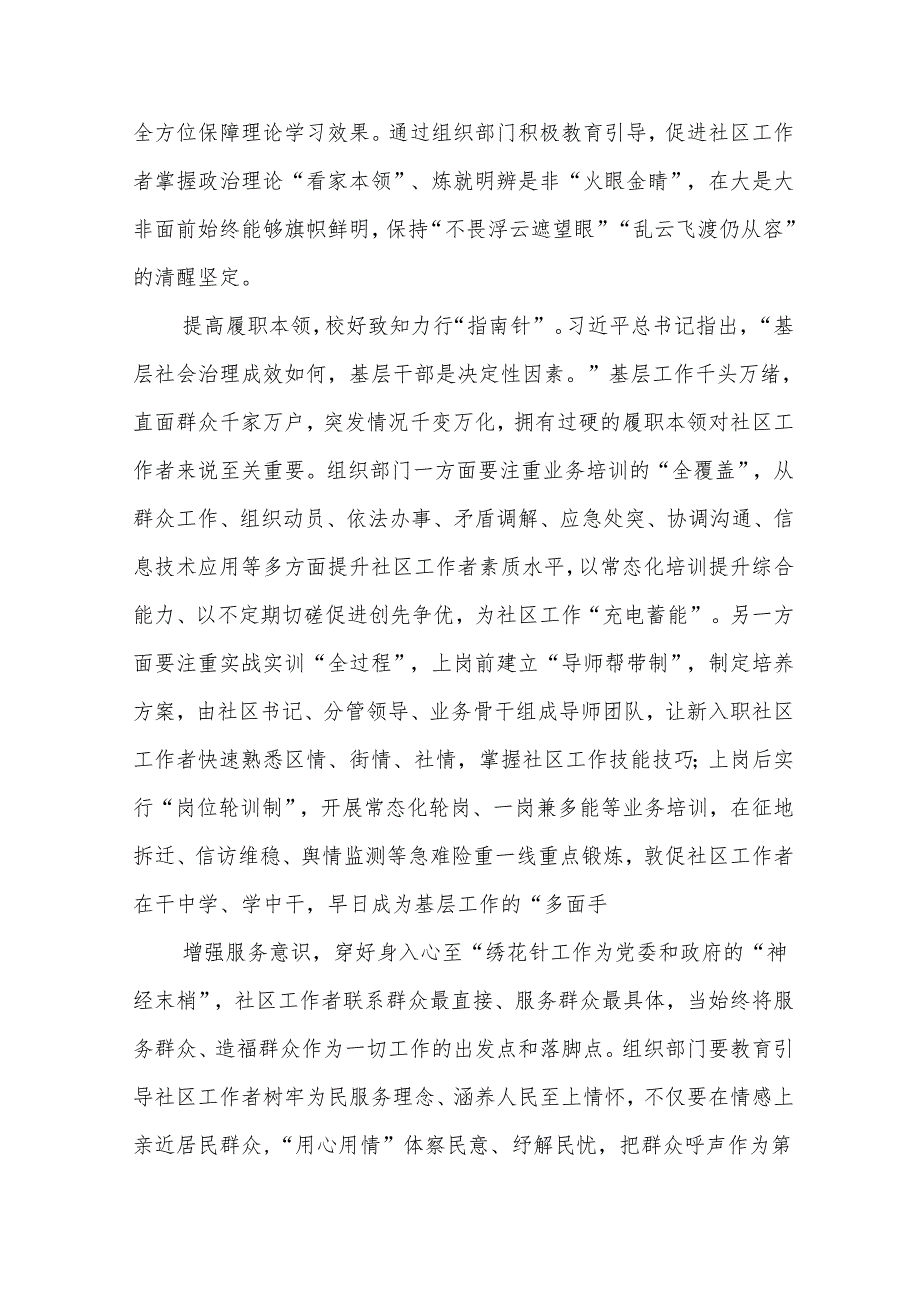 全方位保障理论学习效果。通过组织部门积极教育引导，促进社区工作
者掌握政治理论“看家本领”、炼就明辨是非“火眼金睛”，在大是大
非面前始终能够旗帜鲜明，保持“不畏浮云遮望眼”“乱云飞渡仍从容”
的清醒坚定。
提高履职本领，校好致知力行“指南针”。习近平总书记指出，“基
层社会治理成效如何，基层干部是决定性因素。”基层工作千头万绪，
直面群众千家万户，突发情况千变万化，拥有过硬的履职本领对社区工
作者来说至关重要。组织部门一方面要注重业务培训的“全覆盖”，从
群众工作、组织动员、依法办事、矛盾调解、应急处突、协调沟通、信
息技术应用等多方面提升社区工作者素质水平，以常态化培训提升综合
能力、以不定期切磋促进创先争优，为社区工作“充电蓄能”。另一方
面要注重实战实训“全过程”，上岗前建立“导师帮带制”，制定培养
方案，由社区书记、分管领导、业务骨干组成导师团队，让新入职社区
工作者快速熟悉区情、街情、社情，掌握社区工作技能技巧；上岗后实
行“岗位轮训制”，开展常态化轮岗、一岗兼多能等业务培训，在征地
拆迁、信访维稳、舆情监测等急难险重一线重点锻炼，敦促社区工作者
在干中学、学中干，早日成为基层工作的“多面手
增强服务意识，穿好身入心至“绣花针工作为党委和政府的“神
经末梢”，社区工作者联系群众最直接、服务群众最具体，当始终将服
务群众、造福群众作为一切工作的出发点和落脚点。组织部门要教育引
导社区工作者树牢为民服务理念、涵养人民至上情怀，不仅要在情感上
亲近居民群众，“用心用情”体察民意、纾解民忧，把群众呼声作为第